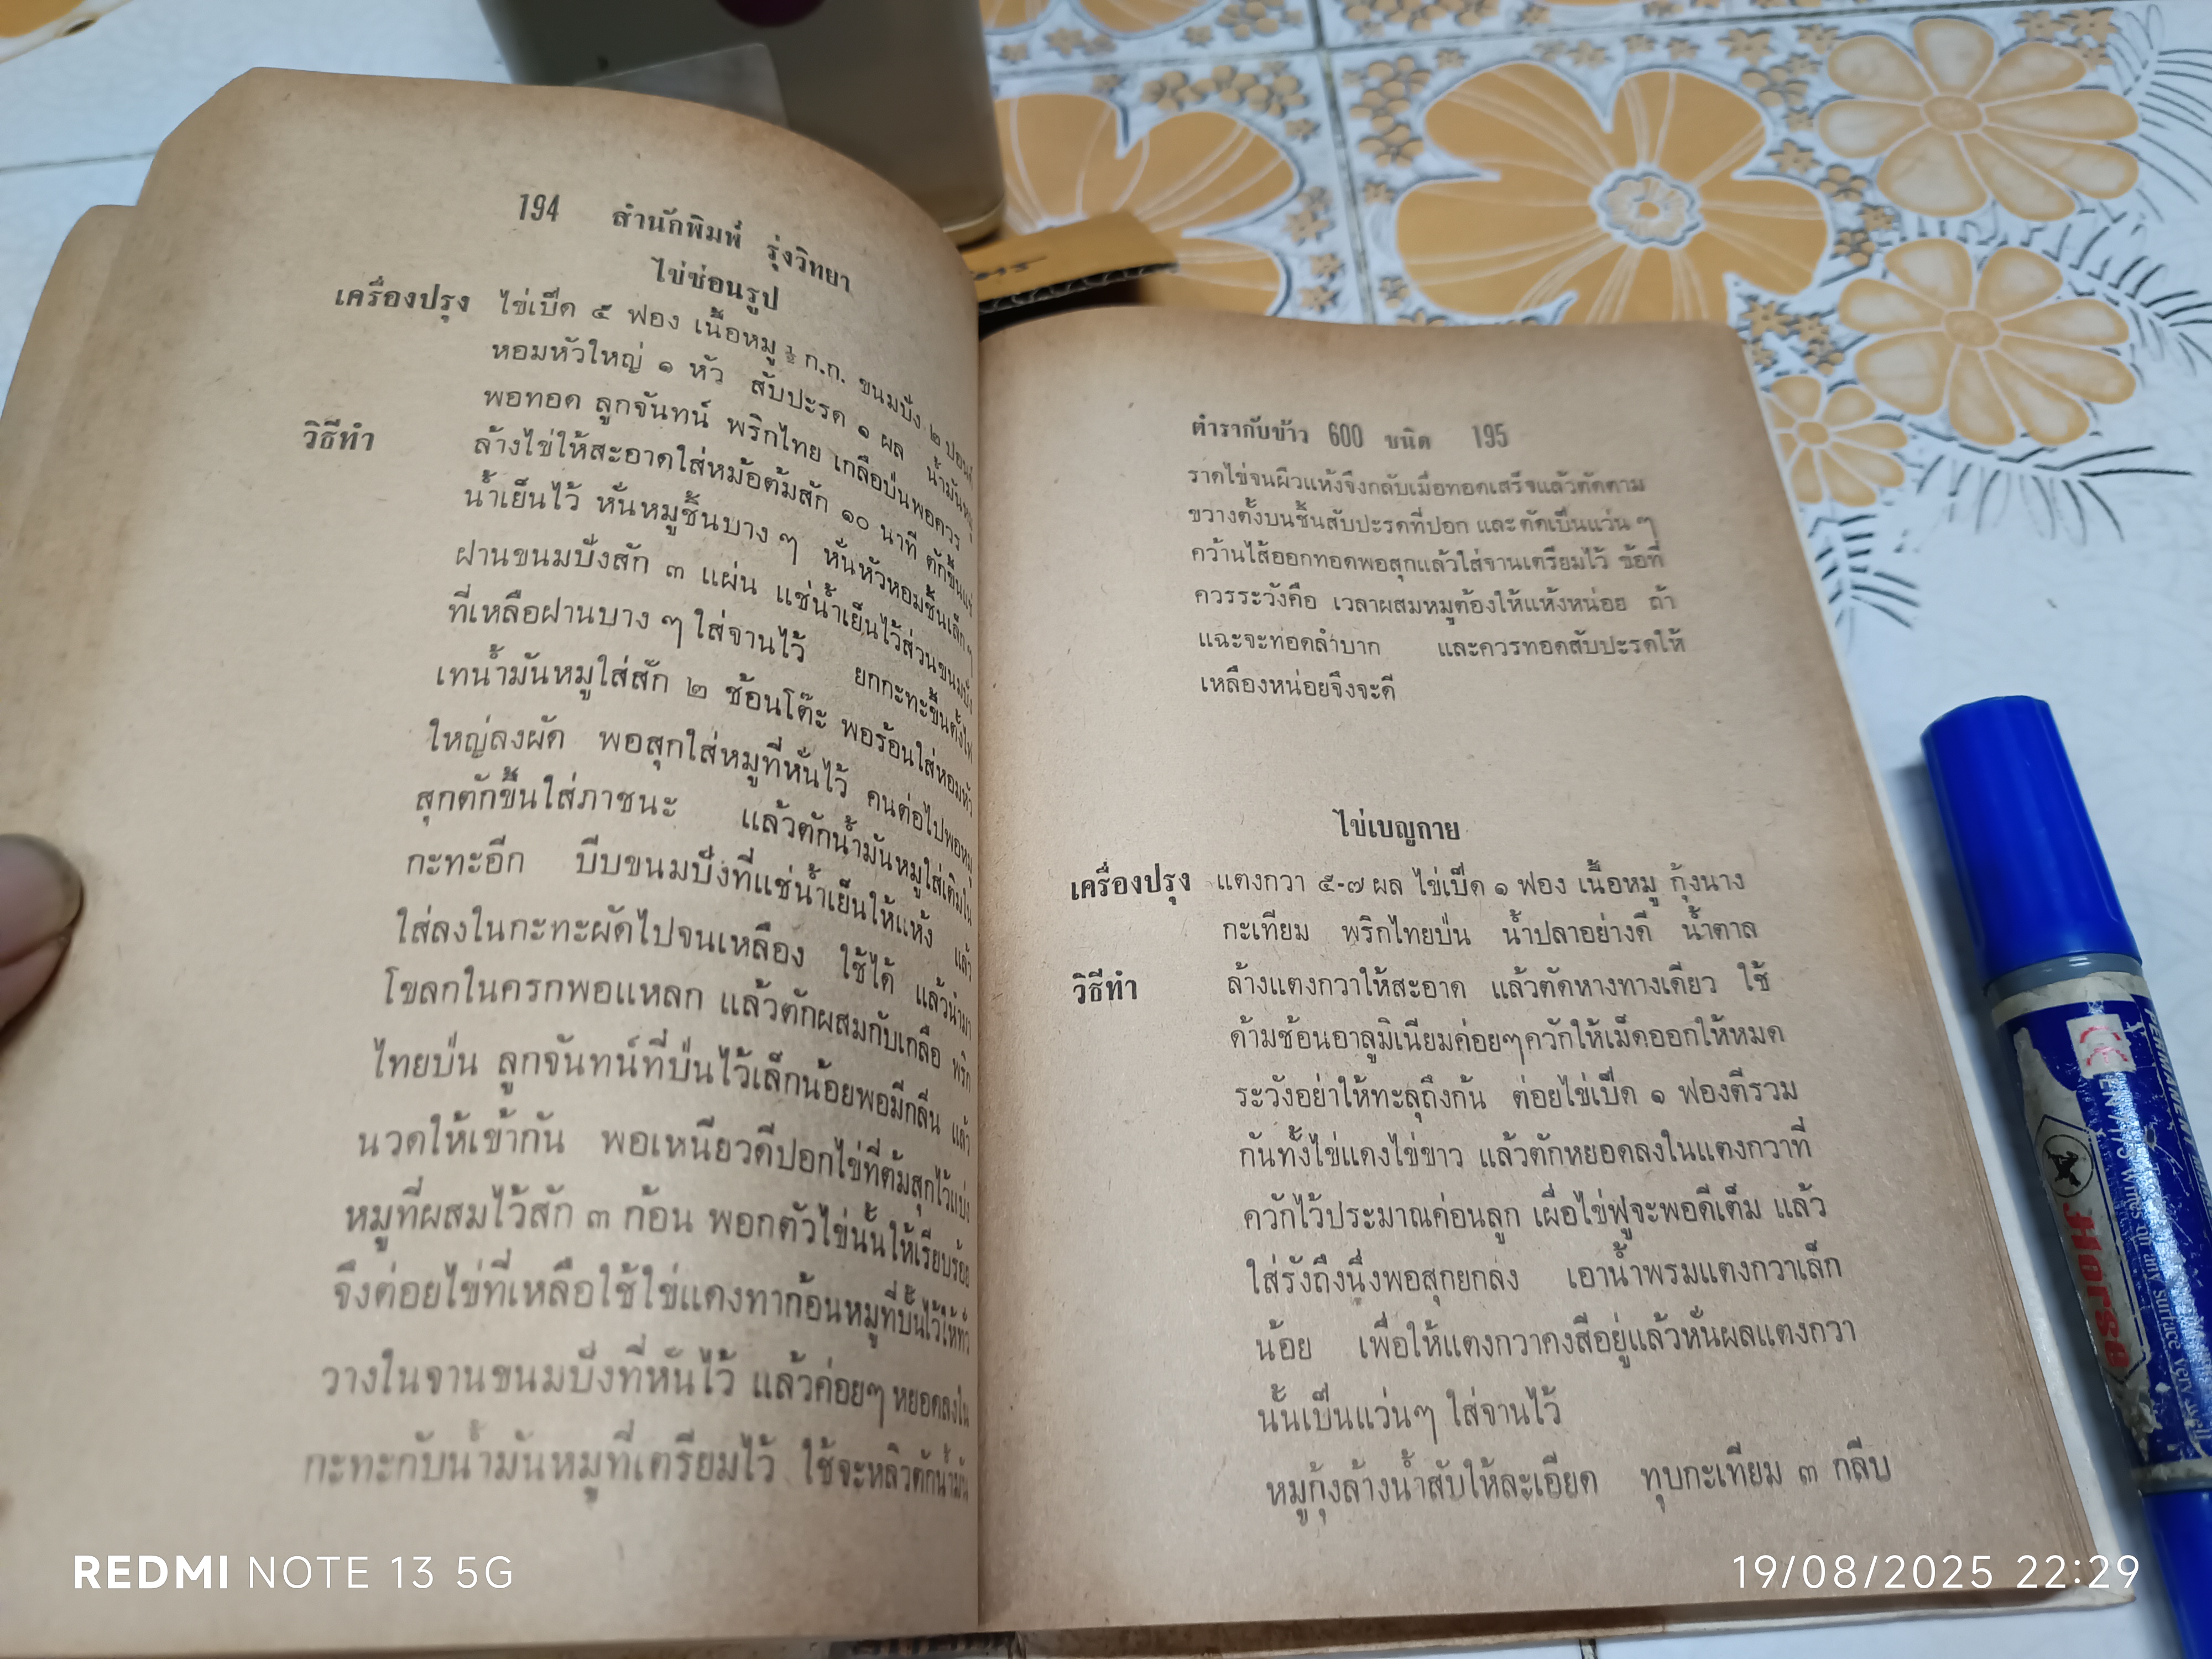 194 สำนักพิมพ์ รุ่งวิทยา
ไข่ซ่อนรูป
เครื่องปรุง ไข่เป็ด ๕ ฟอง เนื้อหมู ½ ก.ก. ขนมปัง ๒ ปอนด์
หอมหัวใหญ่ ๑ หัว สับปะรด ๑ ผล น้ำมันหมู
พอทอด ลูกจันทน์ พริกไทย เกลือป่นพอควร
วิธีทำ ล้างไข่ให้สะอาดใส่หม้อต้มสัก ๑๐ นาที ตักขึ้นแช่
น้ำเย็นไว้ หั่นหมูชิ้นบาง ๆ หั่นหัวหอมชิ้นเล็ก ๆ
ฝานขนมปังสัก ๓ แผ่น แช่น้ำเย็นไว้ส่วนขนมปัง
ที่เหลือฝานบาง ๆ ใส่จานไว้ ยกกะทะขึ้นตั้งไฟ
เทน้ำมันหมูใส่สัก ๒ ช้อนโต๊ะ พอร้อนใส่หอมหัว
ใหญ่ลงผัด พอสุกใส่หมูที่หั่นไว้ คนต่อไปพอหมู
สุกตักขึ้นใส่ภาชนะ แล้วตักน้ำมันหมูใส่เติมใน
กะทะอีก บีบขนมปังที่แช่น้ำเย็นให้แห้ง แล้ว
ใส่ลงในกะทะผัดไปจนเหลือง ใช้ได้ แล้วนำมา
โขลกในครกพอแหลก แล้วตักผสมกับเกลือ พริก
ไทยป่น ลูกจันทน์ที่ป่นไว้เล็กน้อยพอมีกลิ่น แล้ว
นวดให้เข้ากัน พอเหนียวดีปอกไข่ที่ต้มสุกไว้แบ่ง
หมูที่ผสมไว้สัก ๓ ก้อน พอกตัวไข่นั้นให้เรียบร้อย
จึงต่อยไข่ที่เหลือใช้ไข่แดงทาก้อนหมูที่ปั้นไว้ให้ทั่ว
วางในจานขนมปังที่หั่นไว้ แล้วค่อยๆ หยอดลงใน
กะทะกับน้ำมันหมูที่เตรียมไว้ ใช้จะหลิวตักน้ำมัน
ตำรากับข้าว 600 ชนิด 195
ราดไข่จนผิวแห้งจึงกลับเมื่อทอดเสร็จแล้วตัดตาม
ขวางตั้งบนชิ้นสับปะรดที่ปอก และตัดเป็นแว่น ๆ
คว้านไส้ออกทอดพอสุกแล้วใส่จานเตรียมไว้ ข้อที่
ควรระวังคือ เวลาผสมหมูต้องให้แห้งหน่อย ถ้า
แฉะจะทอดลำบาก และควรทอดสับปะรดให้
เหลืองหน่อยจึงจะดี
ไข่เบญกาย
เครื่องปรุง แตงกวา ๕-๗ ผล ไข่เป็ด ๑ ฟอง เนื้อหมู กุ้งนาง
กะเทียม พริกไทยป่น น้ำปลาอย่างดี น้ำตาล
วิธีทำ ล้างแตงกวาให้สะอาด แล้วตัดหางทางเดียว ใช้
ด้ามช้อนอาลูมิเนียมค่อยๆควักให้เม็ดออกให้หมด
ระวังอย่าให้ทะลุถึงก้น ต่อยไข่เป็ด ๑ ฟองตีรวม
กันทั้งไข่แดงไข่ขาว แล้วตักหยอดลงในแตงกวาที่
ควักไว้ประมาณค่อนลูก เผื่อไข่ฟูจะพอดีเต็ม แล้ว
ใส่รังถึงนึ่งพอสุกยกลง เอาน้ำพรมแตงกวาเล็ก
น้อย เพื่อให้แตงกวาคงสีอยู่แล้วหั่นผลแตงกวา
นั้นเป็นแว่นๆ ใส่จานไว้
หมูกุ้งล้างน้ำสับให้ละเอียด ทุบกะเทียม ๓ กลีบ
Horse
REDMI NOTE 13 5G
19/08/2025 22:29